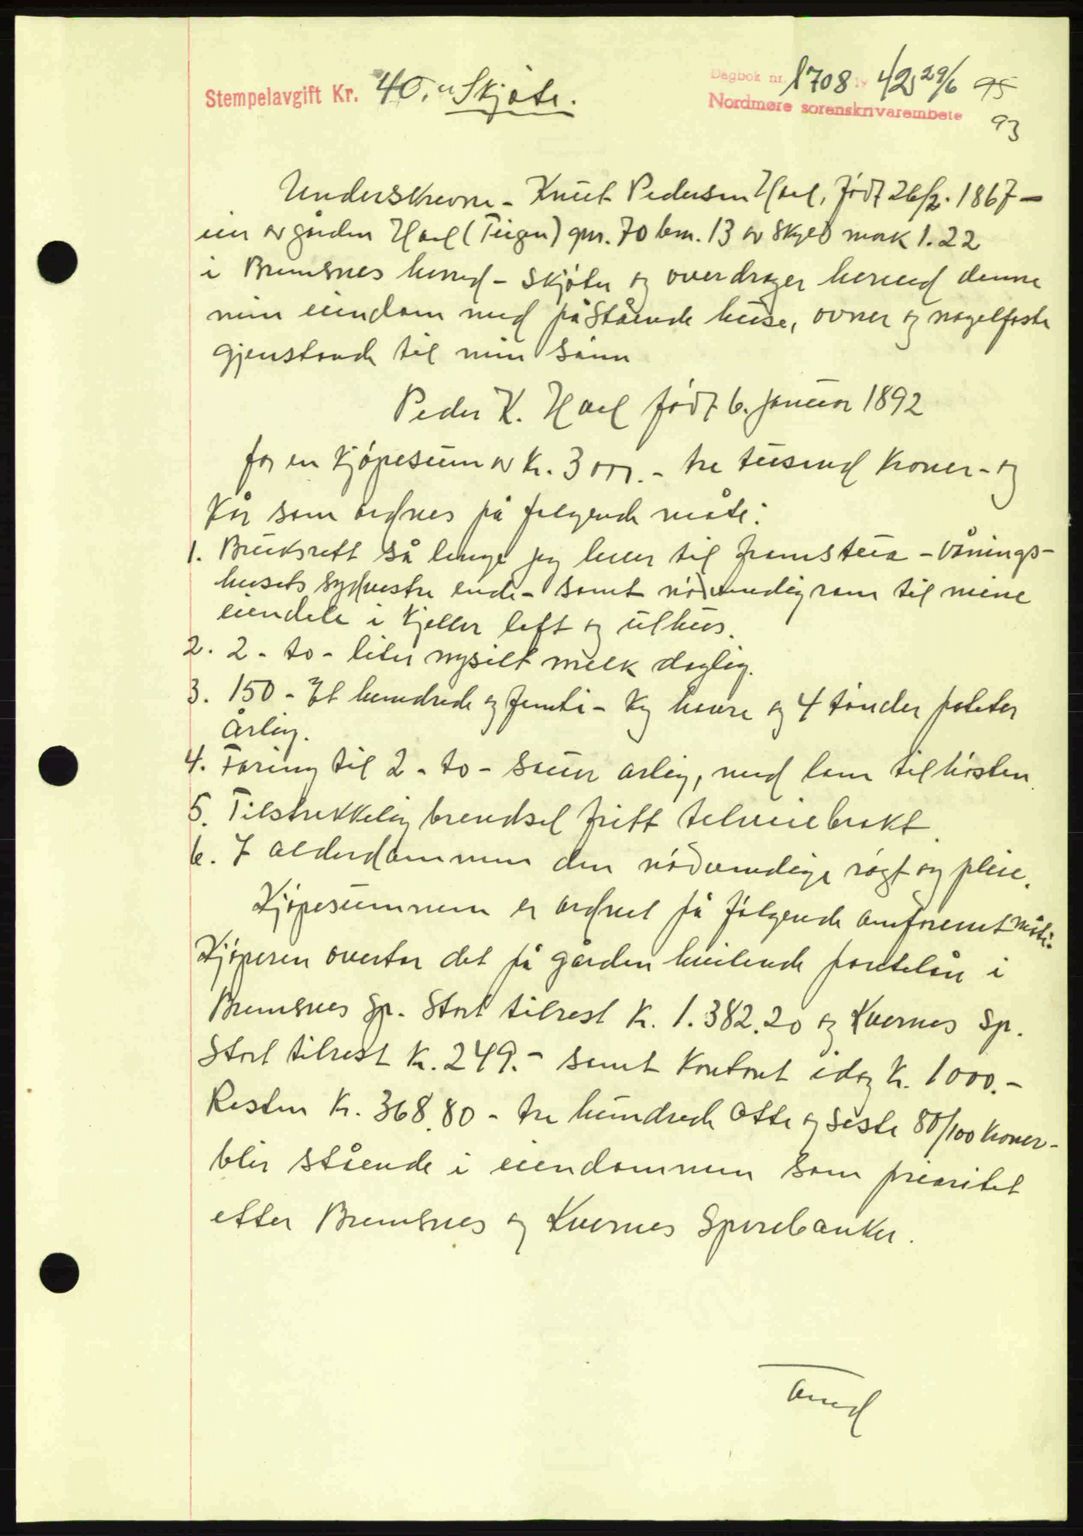 Stempelavgift Kr. 40,- Skjøte.
Dagbok nr. 1708 19 42 29/6 95
Nordmøre sorenskrivarembete
93
Underskrevne - Knut Pedersen Hoel, født 26/2. 1867 -
eier av gården Hoel (Teigen) gnr. 70 bnr. 13 av skyld mark 1.22
i Bremsnes herred - skjøter og overdrager herved denne
min eiendom med påstående huse, ovner og nagelfaste
gjenstande til min sønn
Peder K. Hoel født 6. januar 1892
for en kjøpesum av kr. 3000.- tre tusend kroner - og
kår som ordnes på følgende måte:
1. Bruksrett så lenge jeg lever til framstua - vånings-
husets sydvestre ende - samt nødvendig rom til mine
eiendele i kjeller loft og uthus.
2. 2 - to - liter nysilt melk daglig.
3. 150 - Et hundrede og femti - kg havre og 4 tønder poteter
årlig.
4. Foring til 2 - to - sauer årlig, med lam til høsten.
5. Tilstrekkelig brendsel fritt tilveiebrakt.
6. I alderdommen den nødvendige røgt og pleie.
Kjøpesummen er ordnet på følgende omforenet måte:
Kjøperen overtar det på gården heilende pantelån i
Bremsnes Sp. Stort tilrest kr. 1.382.20 og Kvernes Sp.
Stort tilrest kr. 249.- samt kontant idag kr. 1000.-
Resten kr. 368.80 - tre hundrede otte og seksti 80/100 kroner -
blir stående i eiendommen som prioritet
etter Bremsnes og Kvernes Sparebanker.